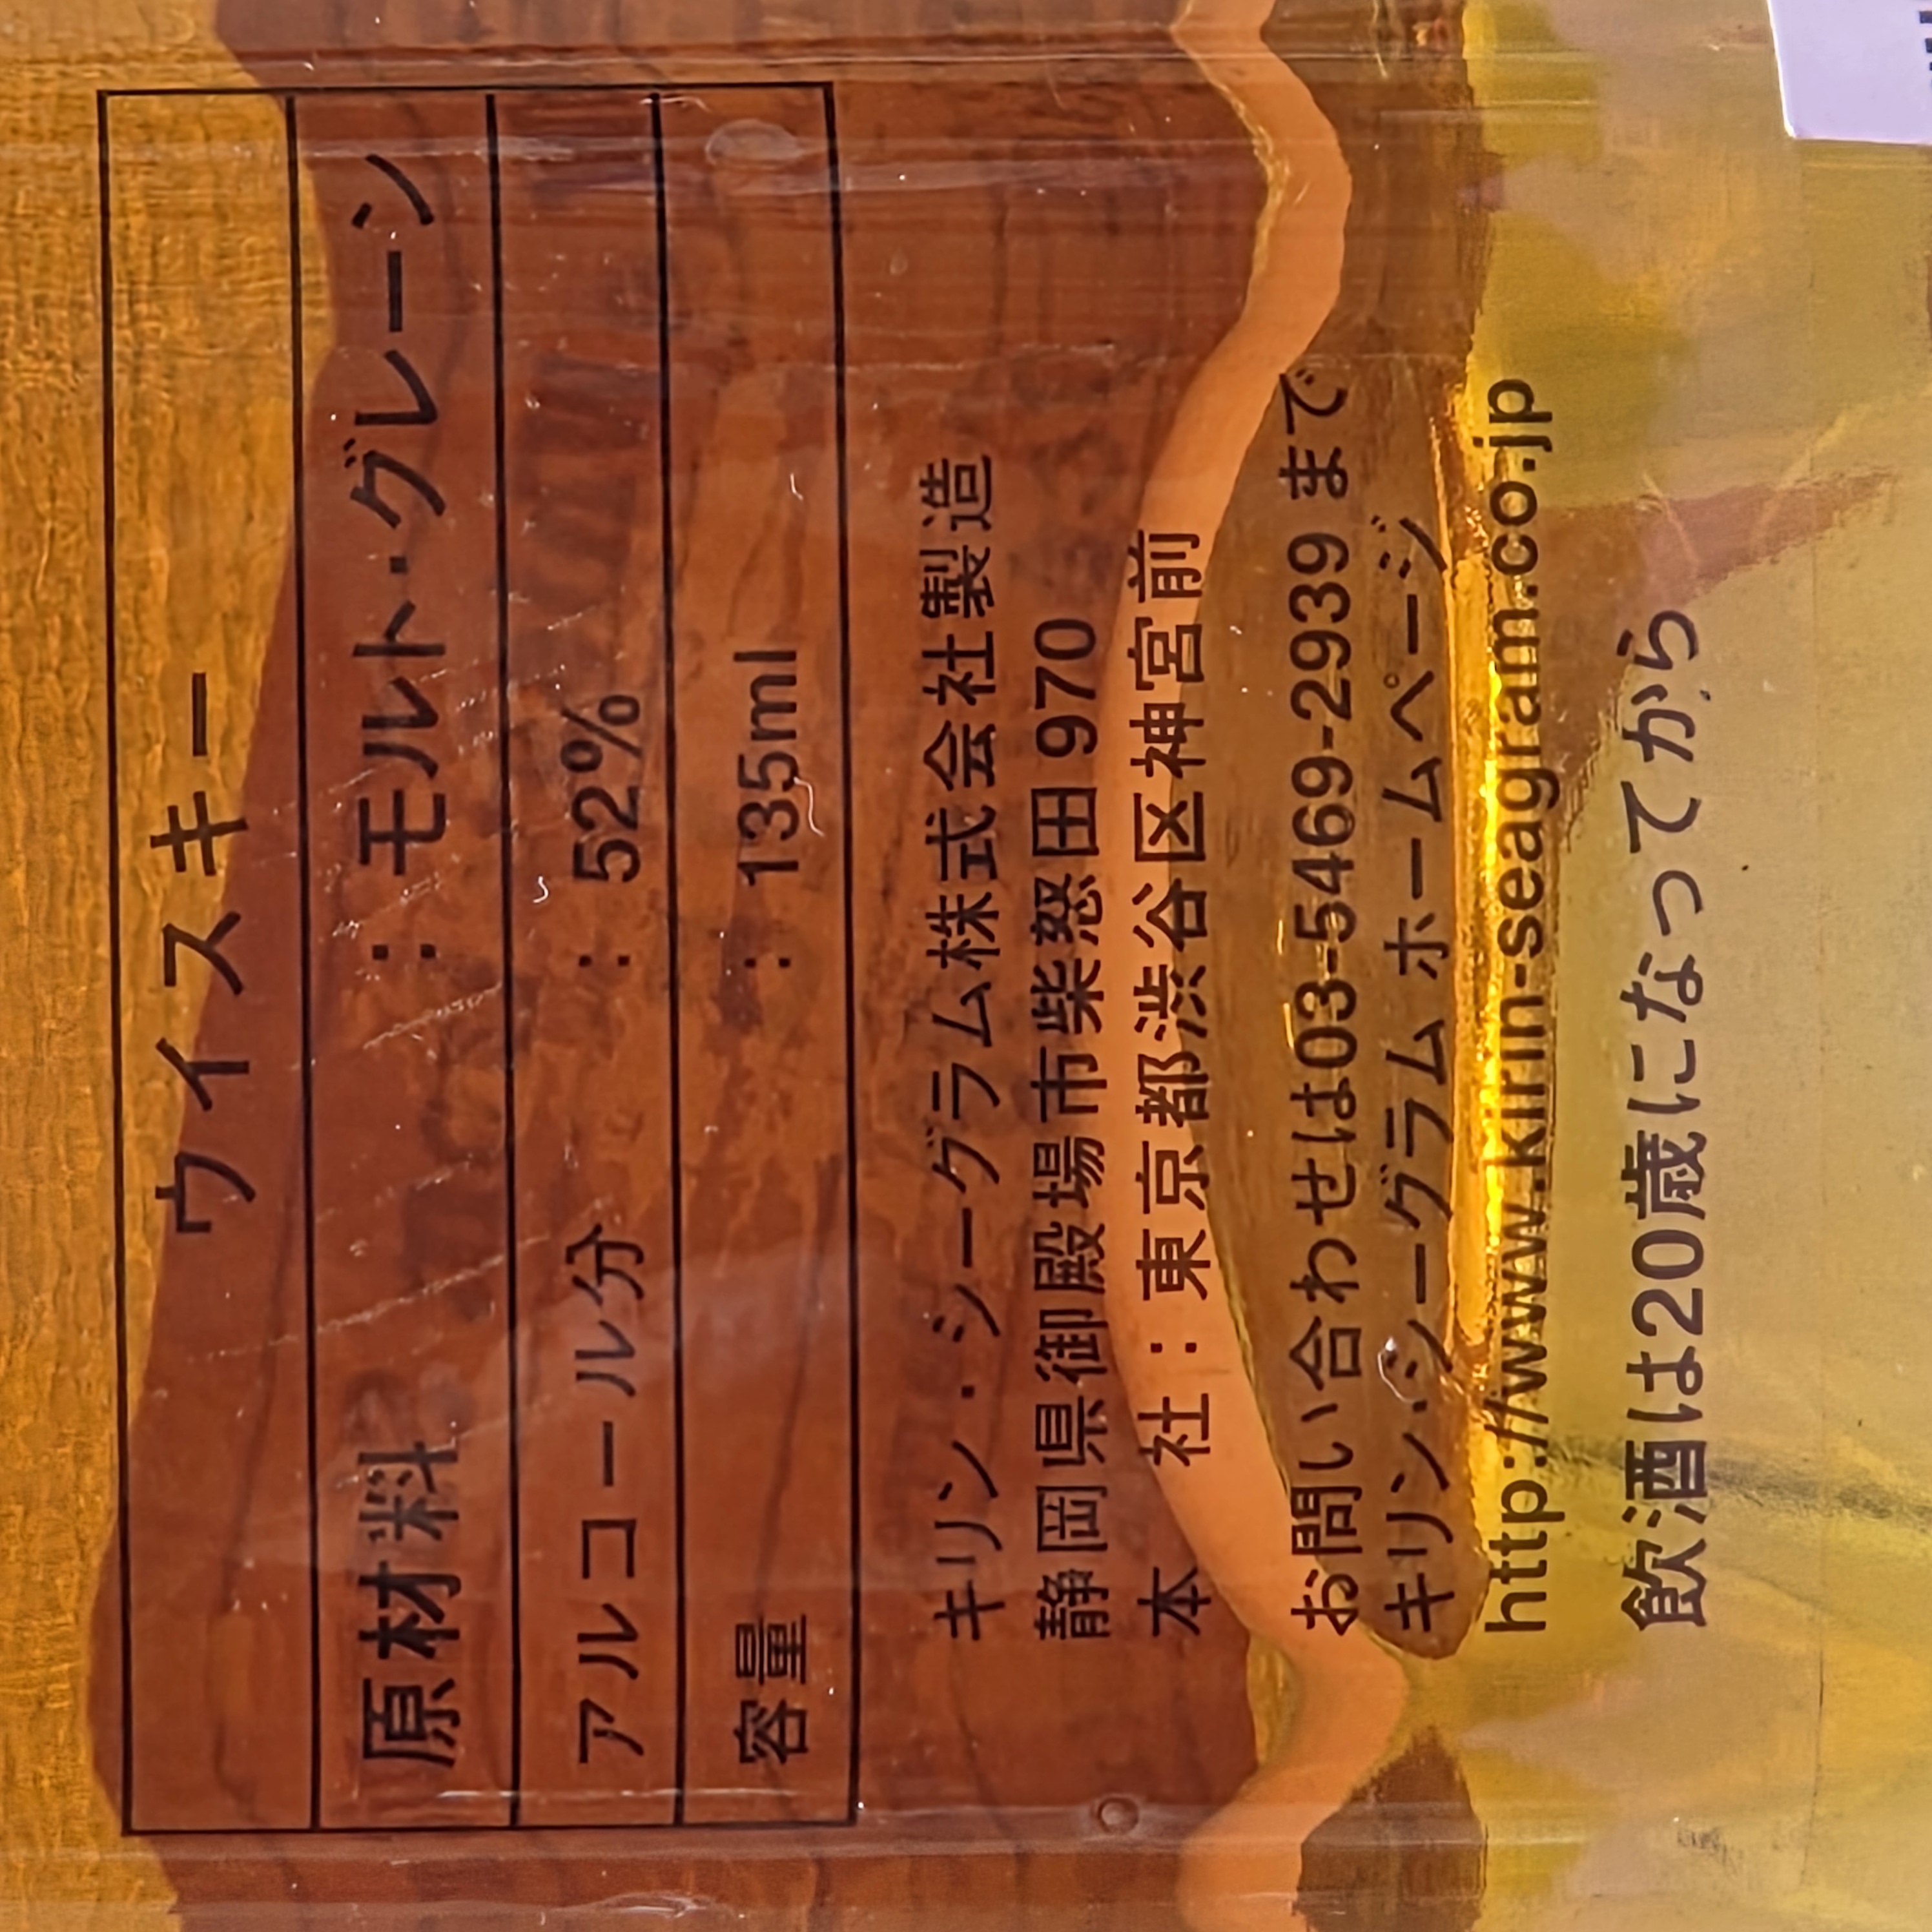 ウイスキー
原材料 : モルト・グレーン
アルコール分 : 52%
容量 : 135ml
キリン・シーグラム株式会社製造
静岡県御殿場市柴怒田970
本 社 : 東京都渋谷区神宮前
お問い合わせは03-5469-2939まで
キリン・シーグラム ホームページ
http://www.kirin-seagram.co.jp
飲酒は20歳になってから